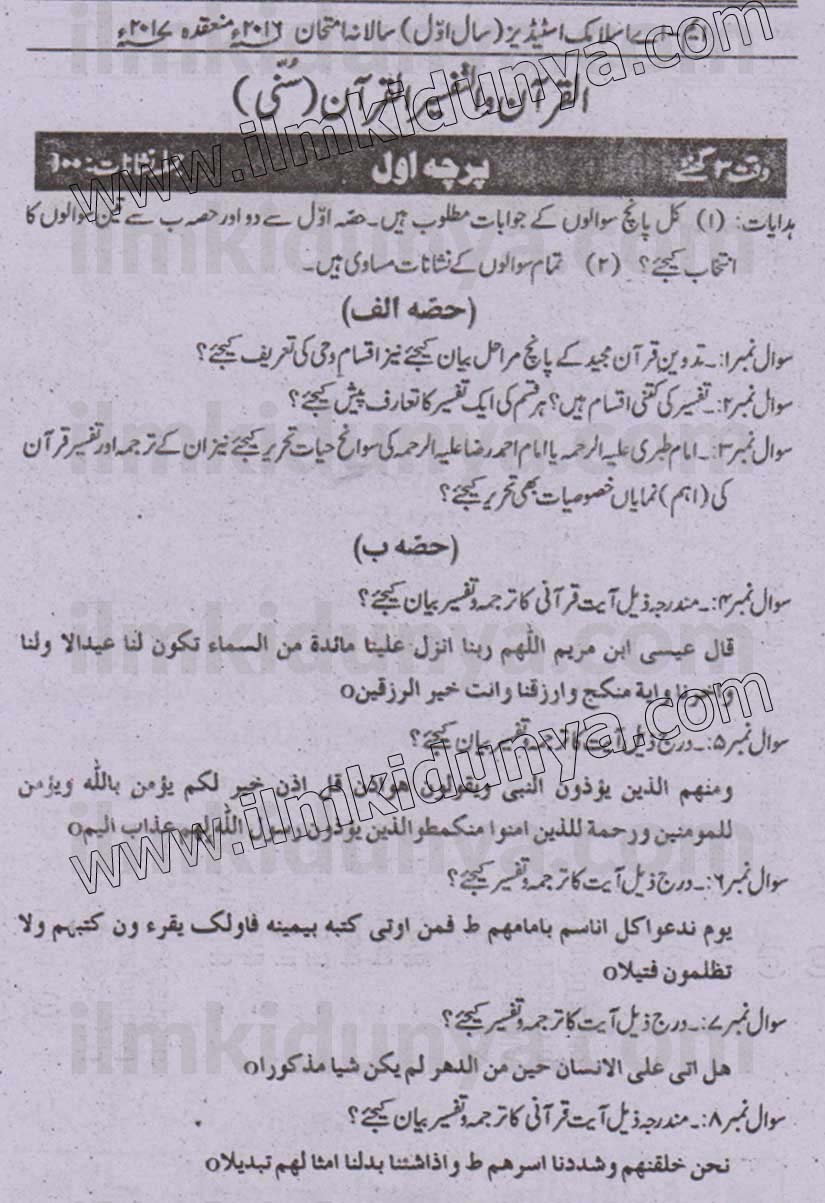 ایم۔ اے اسلامک اسٹیڈیز (سال اوّل) سالانہ امتحان ۲۰۱۶ء منعقدہ ۲۰۱۷ء
القرآن والتفسیر القرآن (سُنّی)
وقت ۳ گھنٹے پرچہ اول کل نشانات: ۱۰۰
ہدایات: (۱) کل پانچ سوالوں کے جوابات مطلوب ہیں۔ حصّہ اوّل سے دو اور حصہ ب سے تین سوالوں کا
انتخاب کیجئے؟ (۲) تمام سوالوں کے نشانات مساوی ہیں۔
(حصّہ الف)
سوال نمبر۱:۔ تدوین قرآن مجید کے پانچ مراحل بیان کیجئے نیز اقسام وحی کی تعریف کیجئے؟
سوال نمبر۲:۔ تفسیر کی کتنی اقسام ہیں؟ ہر قسم کی ایک تفسیر کا تعارف پیش کیجئے؟
سوال نمبر۳:۔ امام طبری علیہ الرحمہ یا امام احمد رضا علیہ الرحمہ کی سوانح حیات تحریر کیجئے نیز ان کے ترجمہ اور تفسیر قرآن
کی (اہم) نمایاں خصوصیات بھی تحریر کیجئے؟
(حصّہ ب)
سوال نمبر۴:۔ مندرجہ ذیل آیت قرآنی کا ترجمہ و تفسیر بیان کیجئے؟
قال عیسی ابن مریم اللهم ربنا انزل علینا مائدة من السماء تکون لنا عیدالا ولنا
واخرنا وایة منکج وارزقنا وانت خیر الرزقینo
سوال نمبر۵:۔ درج ذیل آیت کا ترجمہ و تفسیر بیان کیجئے؟
ومنهم الذین یؤذون النبی ویقولون هواذن قل اذن خیر لکم یؤمن بالله ویؤمن
للمومنین ورحمة للذین امنوا منکمطوالذین یؤذون رسول الله لهم عذاب الیمo
سوال نمبر۶:۔ درج ذیل آیت کا ترجمہ و تفسیر کیجئے؟
یوم ندعواکل اناسم بامامهم ط فمن اوتی کتبه بیمینه فاولک یقرء ون کتبهم ولا
تظلمون فتیلاo
سوال نمبر۷:۔ درج ذیل آیت کا ترجمہ و تفسیر کیجئے؟
هل اتی علی الانسان حین من الدهر لم یکن شیا مذکوراo
سوال نمبر۸:۔ مندرجہ ذیل آیت قرآنی کا ترجمہ و تفسیر بیان کیجئے؟
نحن خلقنهم وشددنا اسرهم ط واذاشئنا بدلنا امثا لهم تبدیلاo
www.ilmkidunya.com
www.ilmkidunya.com
ilmkidunya.com
ilmkidunya.com
ilmkidunya.com
ilmkidunya.com
ilmkidunya.com